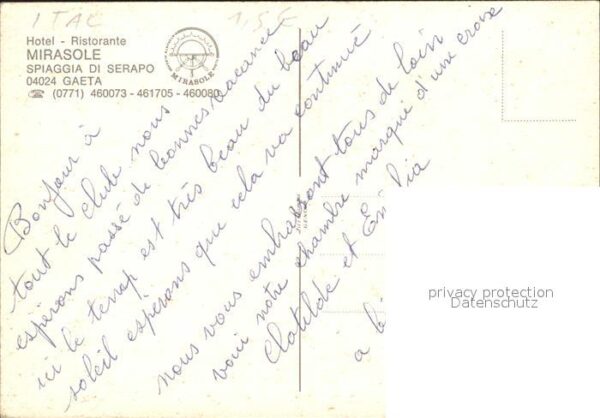 ITAL
1.5E
Hotel - Ristorante
MIRASOLE
SPIAGGIA DI SERAPO
04024 GAETA
☎ (0771) 460073 - 461705 - 460080
MIRASOLE
Bonjour à
tout le club nous
espirons passé de bonnes vacance
ici le temp est très beau du beau
soleil espérons que cela va continué
nous vous embrassont tous de loin
voici notre chambre marqué d'une croix
Clotilde et Emilia
a bi
privacy protection
Datenschutz